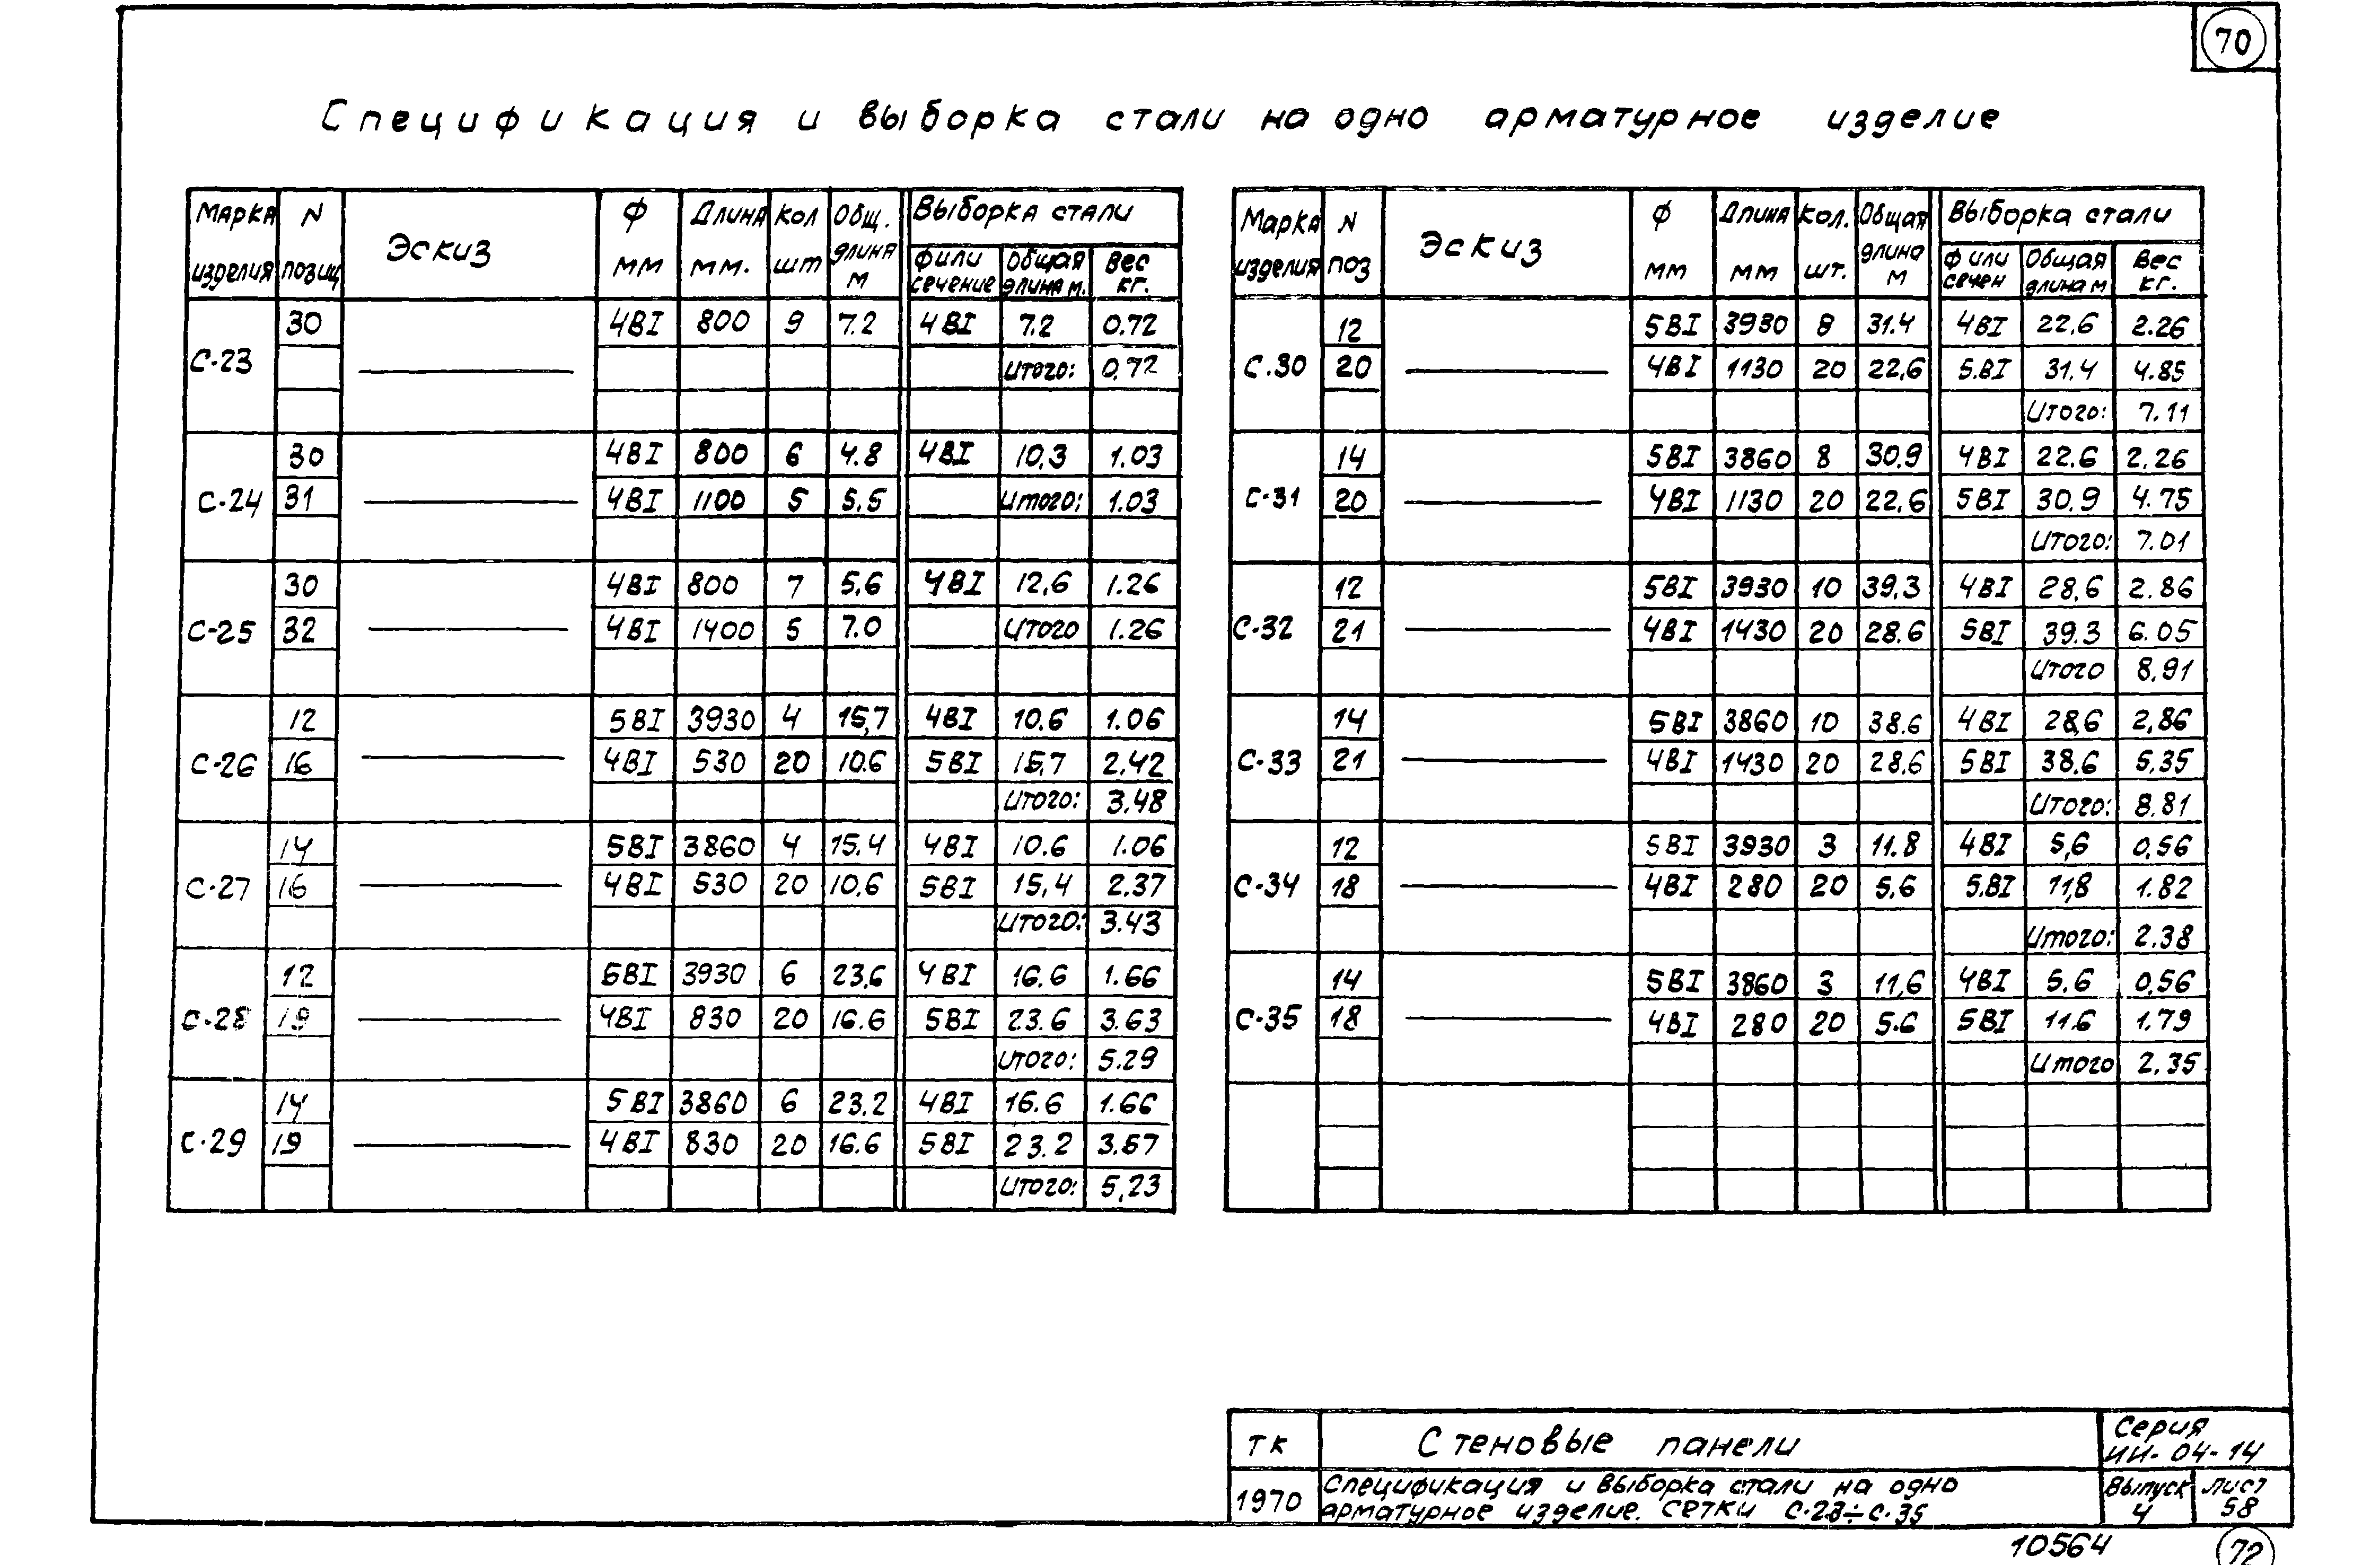 70
Спецификация и выборка стали на одно арматурное изделие
Марка изделия N позиц Эскиз Ф мм Длина мм. Кол шт Общ. длина м Выборка стали
Ф или сечение Общая длина м. Вес кг.
С-23 30 4ВI 800 9 7.2 4ВI 7.2 0.72
Итого: 0.72
С-24 30 4ВI 800 6 4.8 4ВI 10,3 1.03
31 4ВI 1100 5 5.5 Итого: 1.03
С-25 30 4ВI 800 7 5,6 4ВI 12,6 1.26
32 4ВI 1400 5 7.0 Итого 1.26
С-26 12 5ВI 3930 4 15,7 4ВI 10.6 1.06
16 4ВI 530 20 10.6 5ВI 15,7 2.42
Итого: 3.48
С-27 14 5ВI 3860 4 15.4 4ВI 10.6 1.06
16 4ВI 530 20 10,6 5ВI 15,4 2.37
Итого: 3.43
С-28 12 5ВI 3930 6 23,6 4ВI 16.6 1.66
19 4ВI 830 20 16.6 5ВI 23.6 3.63
Итого: 5.29
С-29 14 5ВI 3860 6 23.2 4ВI 16.6 1.66
19 4ВI 830 20 16.6 5ВI 23.2 3.57
Итого: 5,23
Марка изделия N поз Эскиз Ф мм Длина мм Кол. шт. Общая длина м Выборка стали
Ф или сечен Общая длина м Вес кг.
С.30 12 5ВI 3930 8 31.4 4ВI 22.6 2.26
20 4ВI 1130 20 22,6 5.ВI 31.4 4.85
Итого: 7.11
С-31 14 5ВI 3860 8 30.9 4ВI 22.6 2.26
20 4ВI 1130 20 22,6 5ВI 30.9 4.75
Итого: 7.01
С-32 12 5ВI 3930 10 39,3 4ВI 28,6 2.86
21 4ВI 1430 20 28.6 5ВI 39.3 6.05
Итого 8.91
С-33 14 5ВI 3860 10 38.6 4ВI 28,6 2,86
21 4ВI 1430 20 28.6 5ВI 38,6 5.35
Итого: 8.81
С-34 12 5ВI 3930 3 11.8 4ВI 5,6 0,56
18 4ВI 280 20 5,6 5.ВI 11,8 1.82
Итого: 2.38
С-35 14 5ВI 3860 3 11,6 4ВI 5.6 0,56
18 4ВI 280 20 5.6 5ВI 11.6 1.79
Итого 2.35
ТК Стеновые панели Серия ИИ-04-14
1970 Спецификация и выборка стали на одно арматурное изделие. Сетки С-23÷С-35 Выпуск 4 Лист 58
10564 72